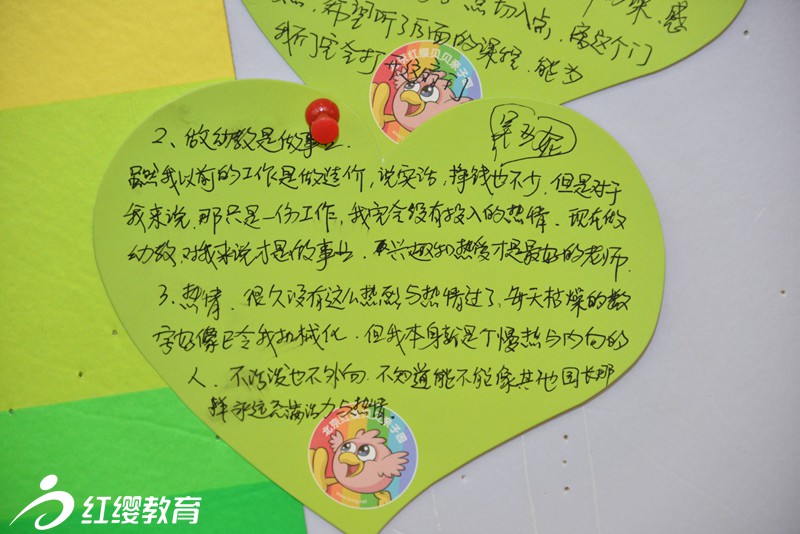 点切入点,
希望听了后面的课程,能为
我们完全打开
红缨贝贝亲子园
2、做幼教是做事业.
虽然我以前的工作是做造价,说实话,挣钱也不少,但是对于
我来说,那只是一份工作,我完全没有投入的热情.现在做
幼教,对我来说才是做事业.兴趣和热爱才是最好的老师.
3.热情.很久没有这么热烈与热情过了,每天枯燥的数
字好像已令我机械化.但我本身就是个慢热与内向的
人.不活泼也不外向.不知道能不能像其他园长那
样永远充满活力与热情.
北京红缨
亲子园
红缨教育